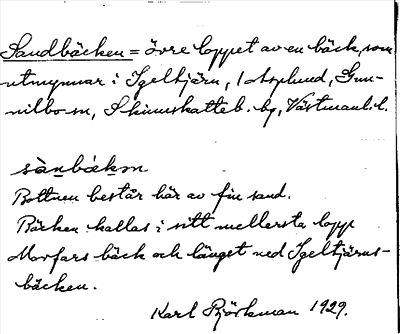 Sandbäcken = övre loppet av en bäck, som
utmynnar i Igeltjärn, l Asplund, Gun-
nilbo sn, Skinnskatteb. bg, Västmanl. l.
sànbǽkɜn
Bottnen består här av fin sand.
Bäcken kallas i sitt mellersta lopp
Morfars bäck och längst ned Igeltjärns-
bäcken.
Karl Björkman 1929.